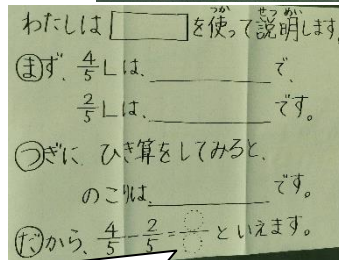 わたしは を使って説明します
つか せつめい
まず、4/5Lは、 で、
2/5Lは、 です。
つぎに、ひき算をしてみると、
のこりは、 です。
だから、4/5-2/5= といえます。